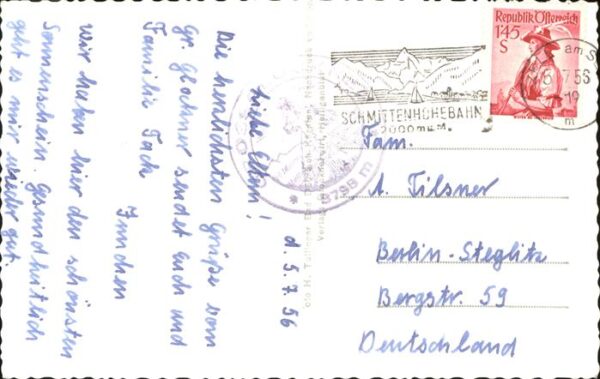 d. 5.7.56
Liebe Eltern!
Die herrlichsten Grüße vom
Gr. Glockner sendet Euch und
Familie
wir haben hier den schönsten
Sonnenschein. Gesundheitlich
geht es mir wieder gut.
Republik Österreich
1'45
S
SCHMITTENHÖHEBAHN
2000 m ü. M.
3798 m
Fam.
A. Tilsner
Berlin-Steglitz
Bergstr. 59
Deutschland